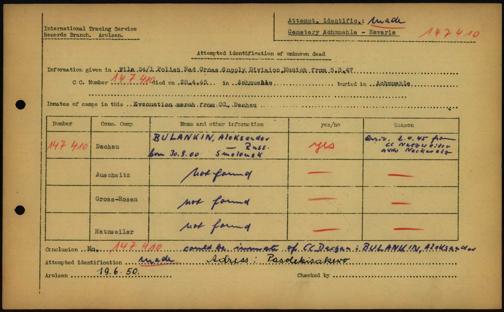 International Tracing Service
Records Branch. Arolsen.
Attempt. identific.: made
Cemetery Achmuehle - Bavaria 147410
Attempted identification of unknown dead
Information given in File 24/1 Polish Red Cross Supply Division, Munich from 5.3.47
C.C. Number 147410 died on in Achmuehle buried in Achmuehle
Inmates of camps in this Evacuation march from CC. Dachau
Number Conc. Camp Name and other information yes/no Reason
147410 Dachau BULANKIN, Aleksander - Russ. born 30.8.00 Smolensk yes 2.4.45 from CC Natzweiler
Auschwitz not found —
Gross-Rosen not found —
Natzweiler not found —
Conclusion No. 147.410 could be inmate of CC Dachau: BULANKIN, Aleksander
Attempted identification made Adress:
Arolsen 19.6.50. Checked by